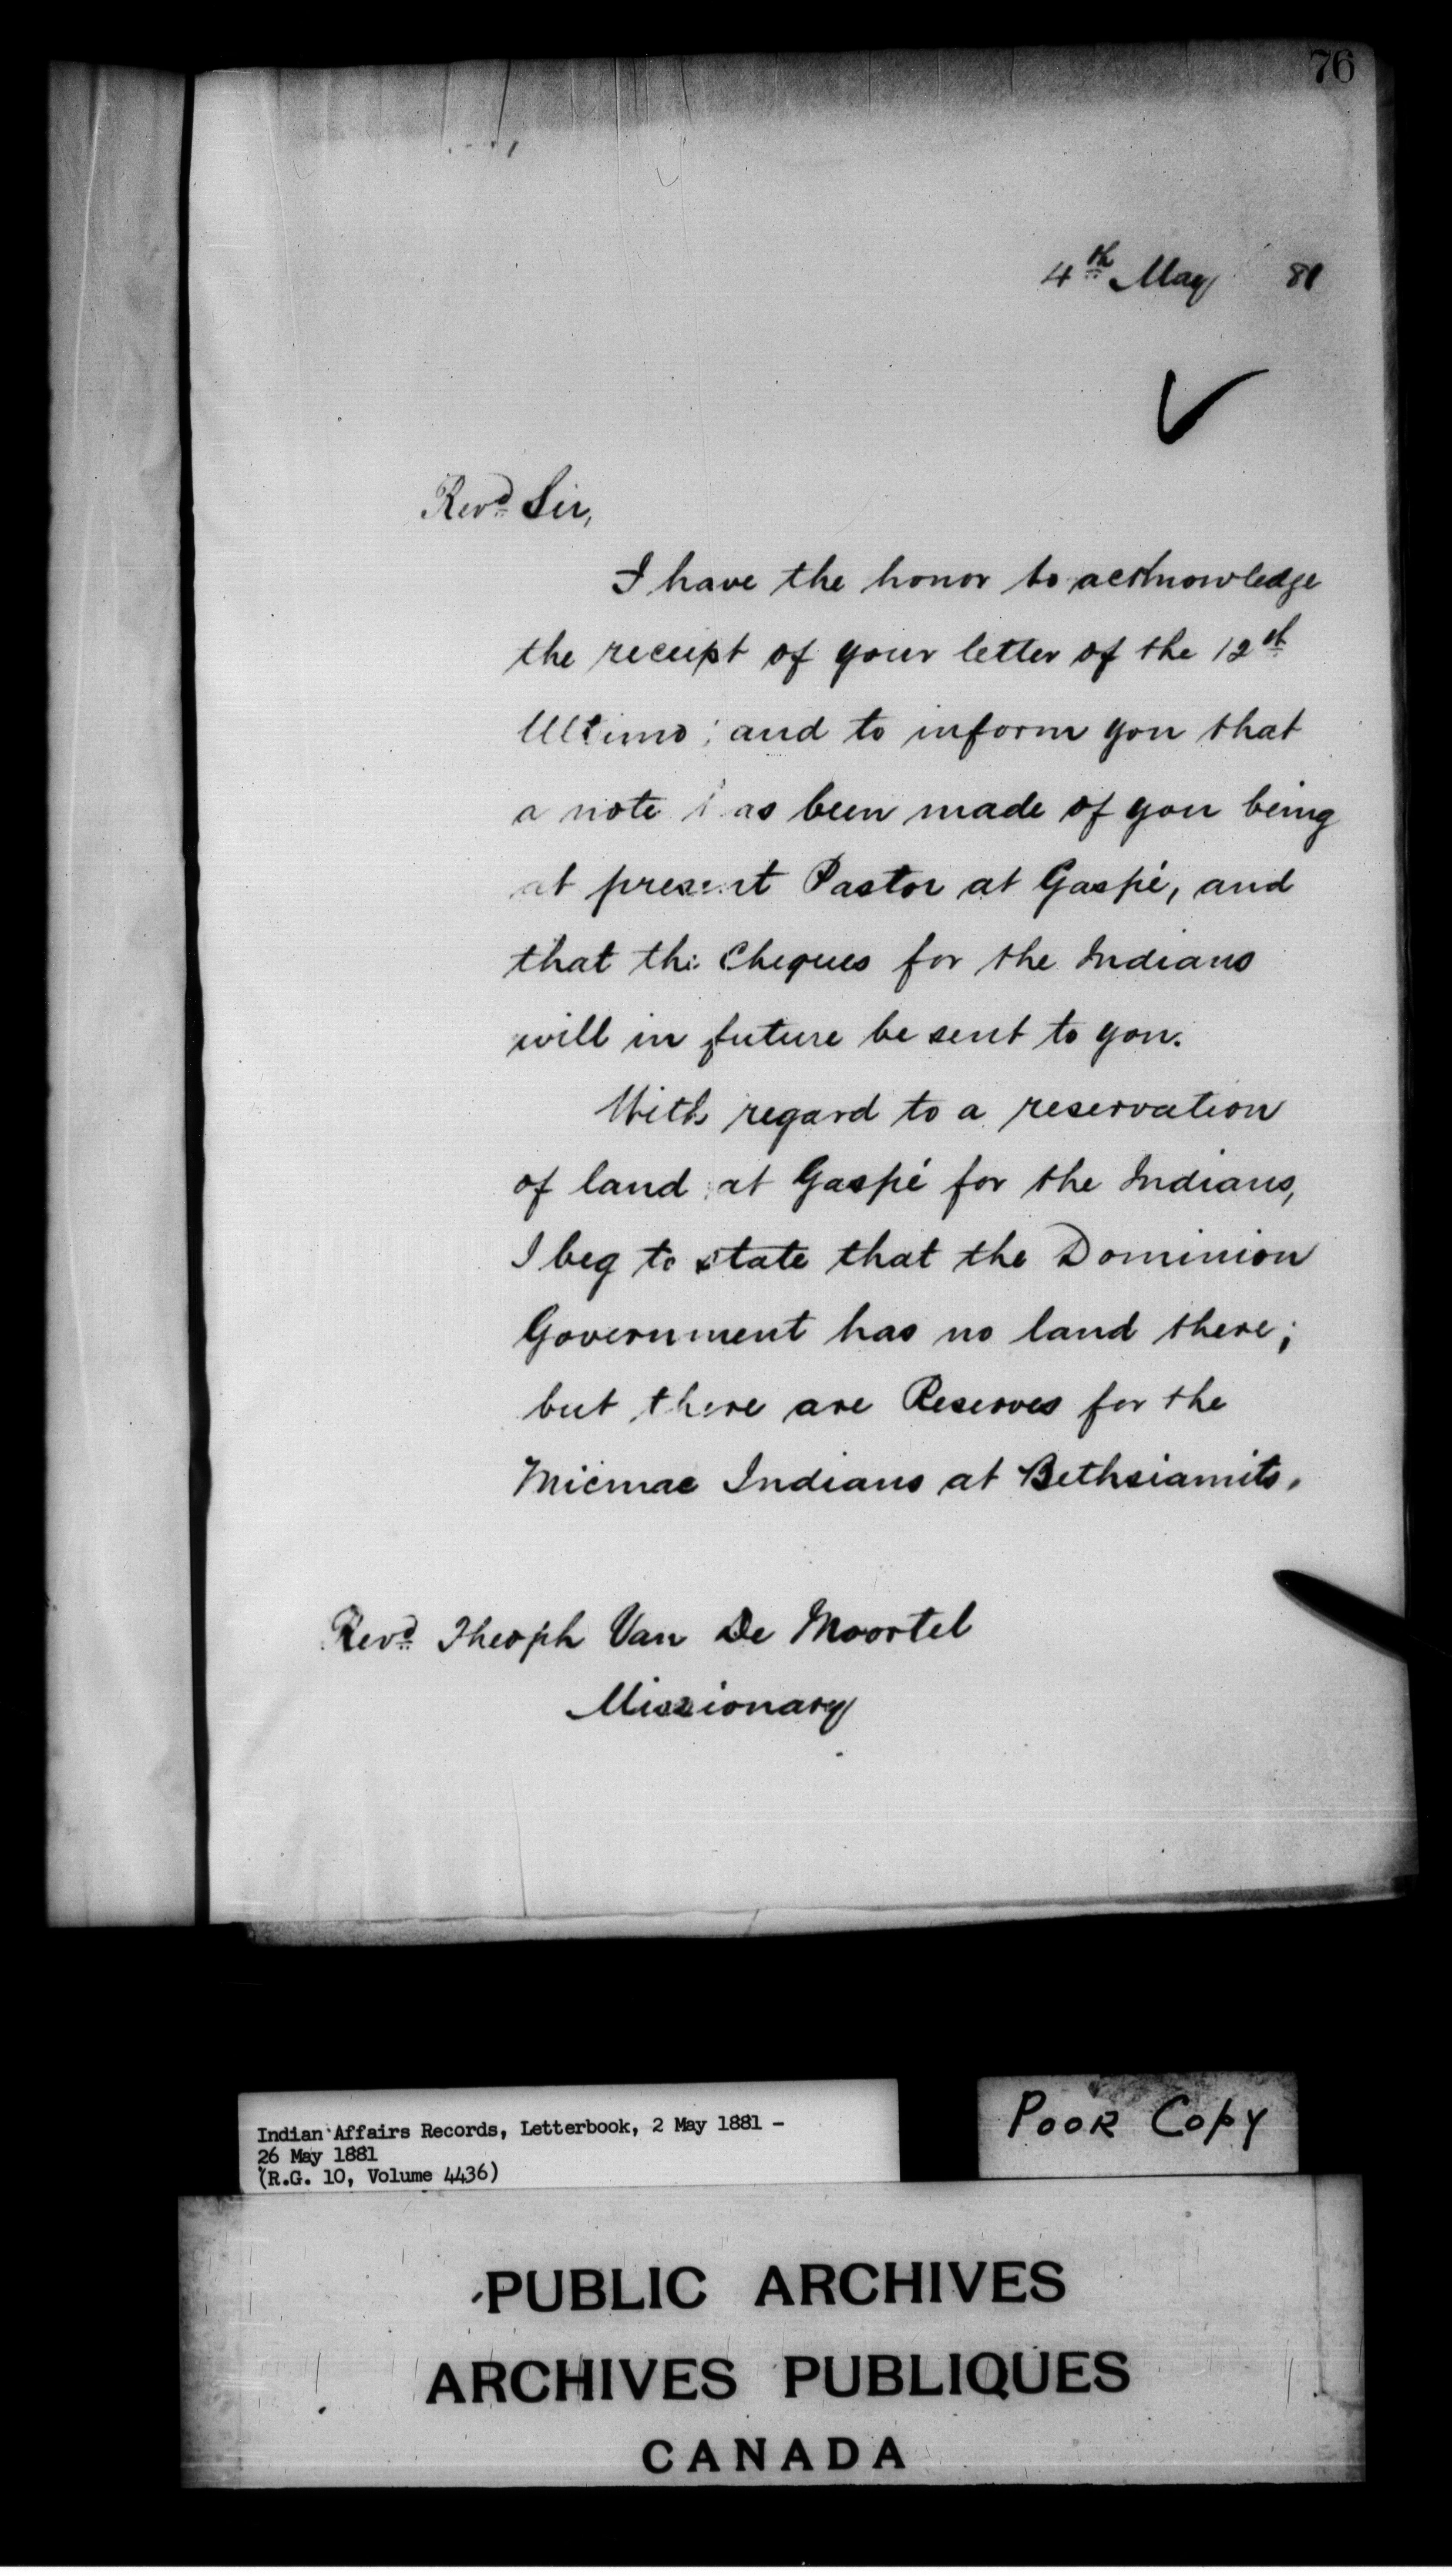 76
4th May 81
Revd Sir,
I have the honor to acknowledge
the receipt of your letter of the 12th
Ultimo; and to inform you that
a note has been made of you being
at present Pastor at Gaspé, and
that the Cheques for the Indians
will in future be sent to you.
With regard to a reservation
of land at Gaspé for the Indians,
I beg to state that the Dominion
Government has no land there;
but there are Reserves for the
Micmac Indians at Bethsiamits.
Revd Theoph Van De Moortel
Missionary
Indian Affairs Records, Letterbook, 2 May 1881 -
26 May 1881
(R.G. 10, Volume 4436)
POOR COPY
PUBLIC ARCHIVES
ARCHIVES PUBLIQUES
CANADA